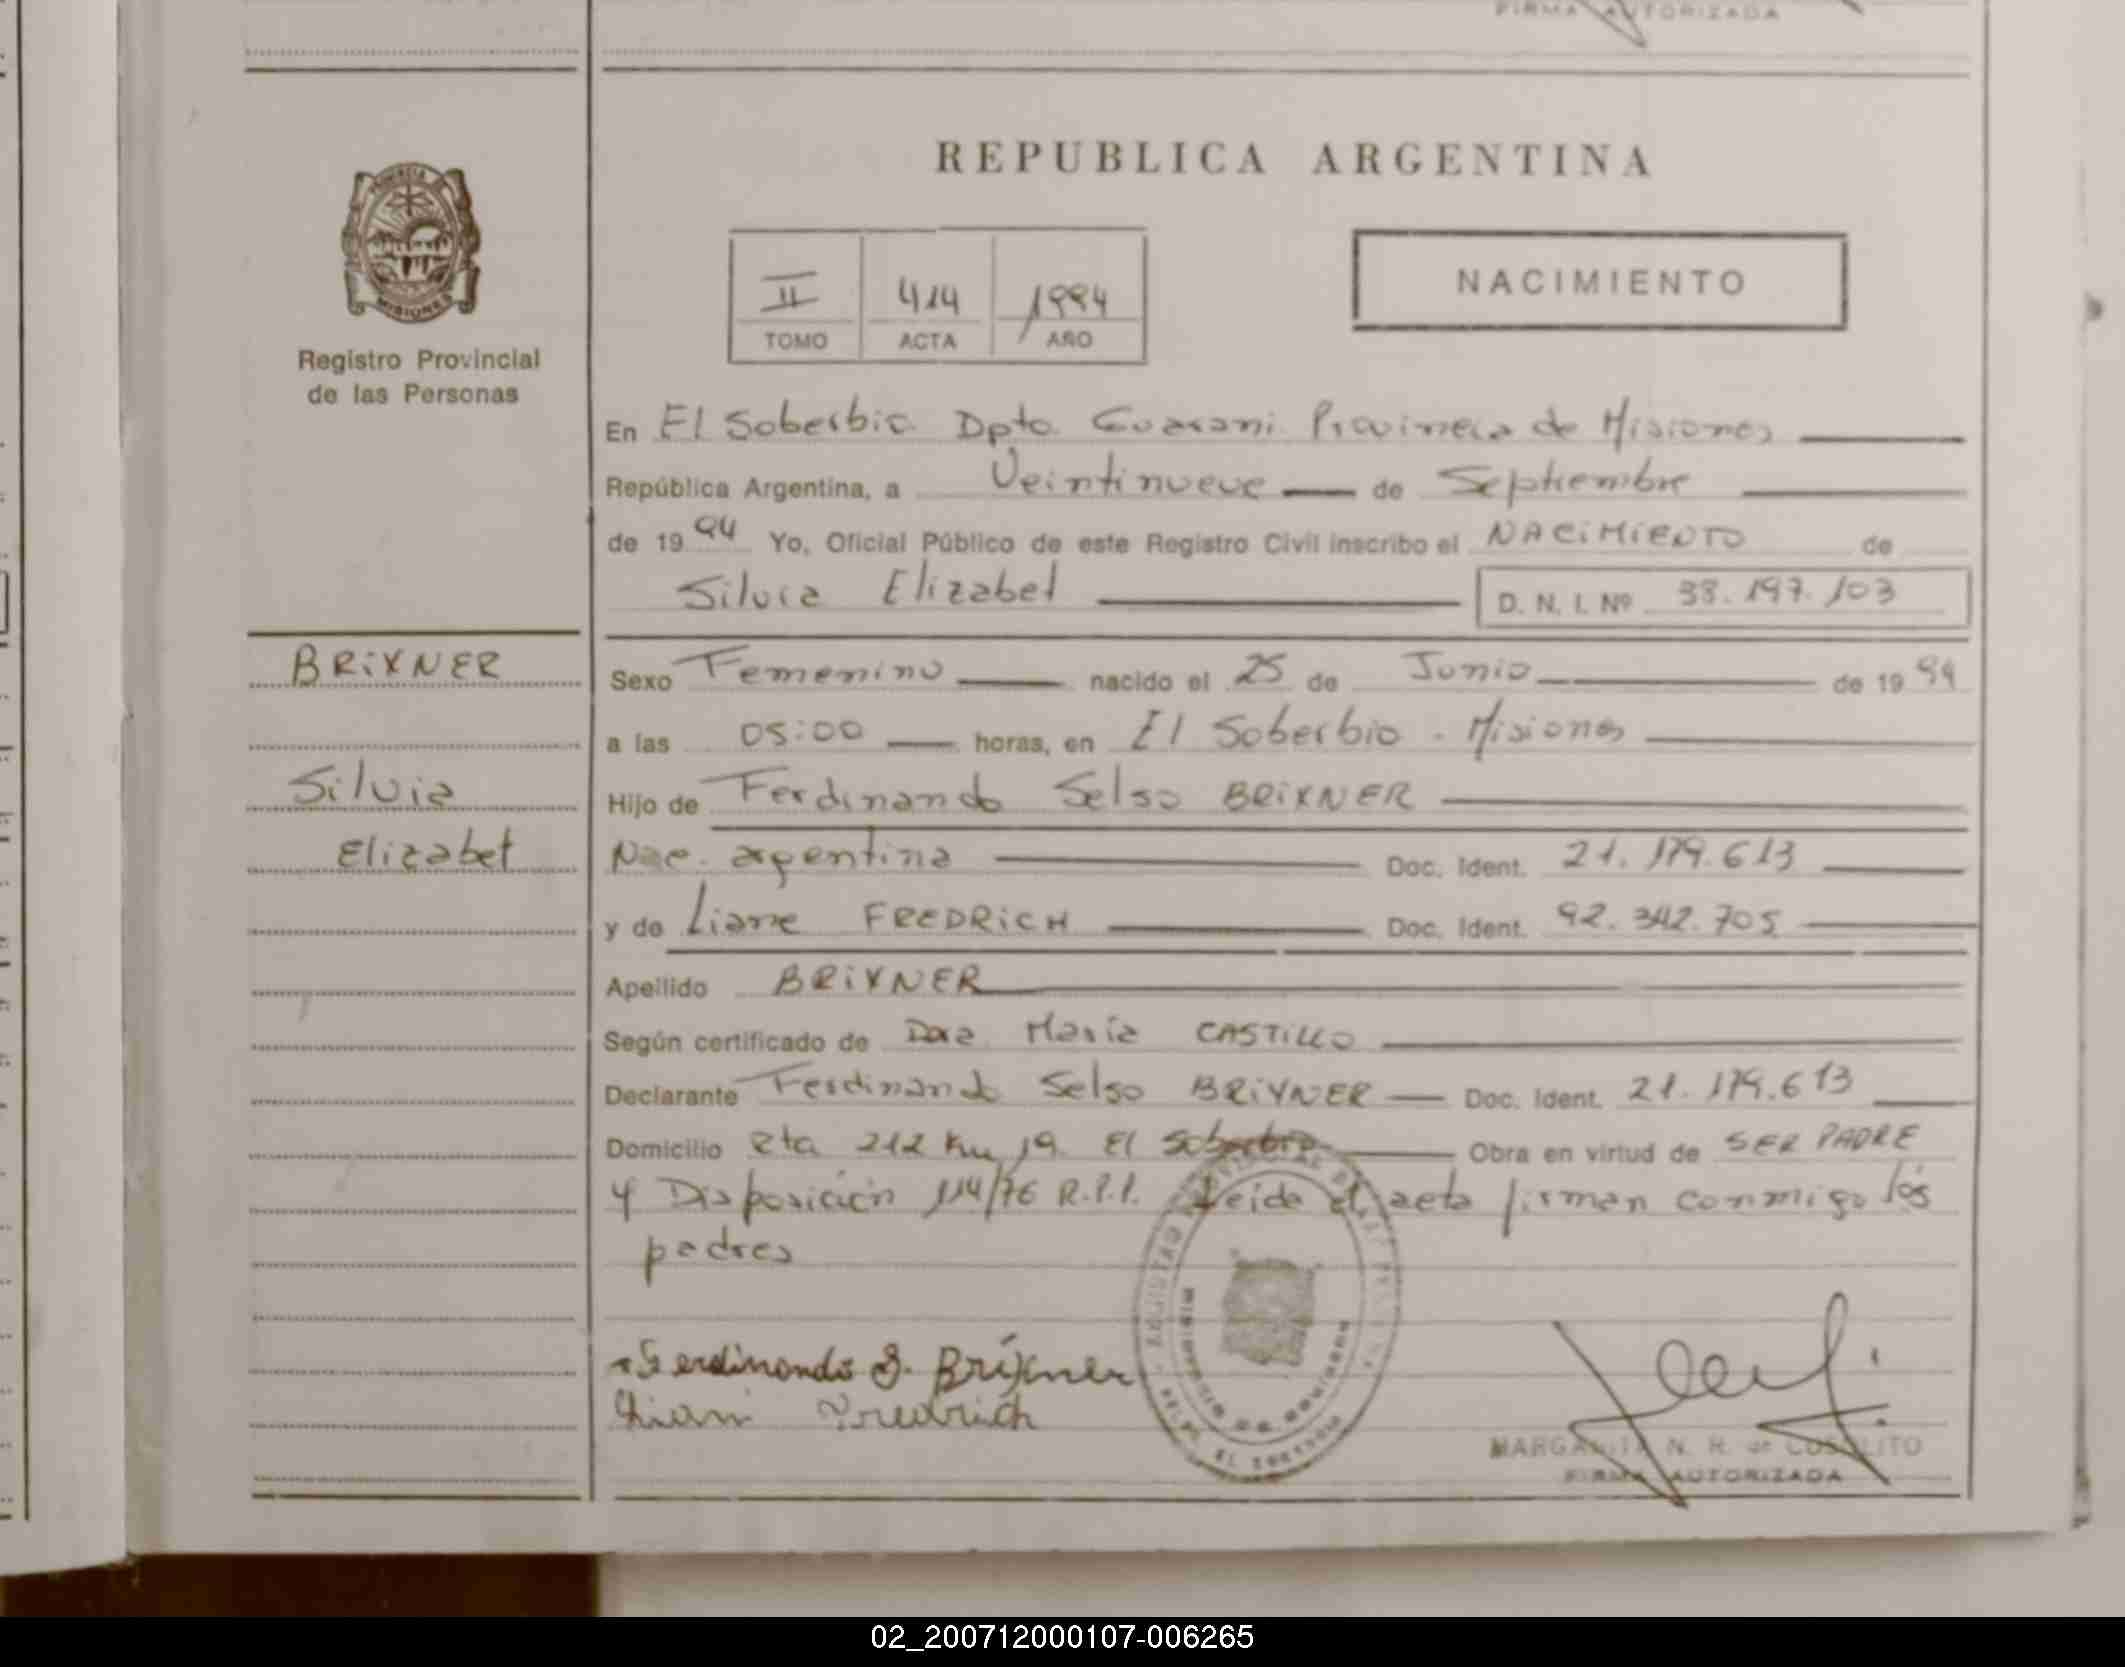 FIRMA AUTORIZADA
REPUBLICA ARGENTINA
II 414 1994
TOMO ACTA AÑO
NACIMIENTO
MISIONES
Registro Provincial
de las Personas
En El Soberbio Dpto. Guarani Provincia de Misiones
República Argentina, a Veintinueve de Septiembre
de 19 94 Yo, Oficial Público de este Registro Civil inscribo el NACIMIENTO de
Silvia Elizabet D. N. I. Nº 38.197.103
BRIXNER
Silvia
Elizabet
Sexo Femenino nacido el 25 de Junio de 19 94
a las 05:00 horas, en El Soberbio - Misiones
Hijo de Ferdinando Selso BRIXNER
Nac. argentina Doc. Ident. 21.179.613
y de Liane FREDRICH Doc. Ident. 92.342.705
Apellido BRIXNER
Según certificado de Dora María CASTILLO
Declarante Ferdinando Selso BRIXNER Doc. Ident. 21.179.613
Domicilio Rta 212 Km 19 El Soberbio Obra en virtud de SER PADRE
y Disposición 114/76 R.P.P. Leida el acta firman conmigo los
padres
Ferdinando S. Brixner
Fredrich
MARGARITA N. R. de
FIRMA AUTORIZADA
02_200712000107-006265